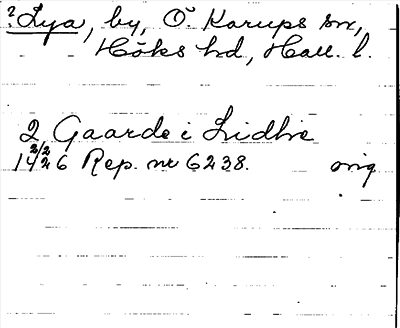 ? Lya, by, Ö Karups sn,
Höks hd, Hall. l.
2 Gaarde i Lidhie
2/2
1426 Rep. nr 6238. orig